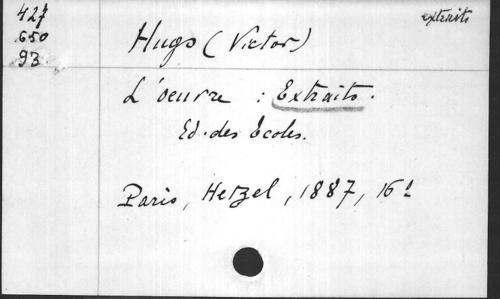 427
650
93
extraits
Hugo (Victor)
L'oeuvre : Extraits.
Ed. des Ecoles.
Paris, Hetzel, 1887, 16º